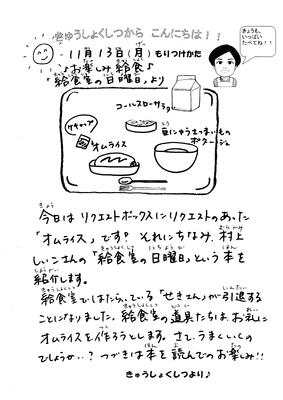 きゅうしょくしつから こんにちは！！
きょうも、
いっぱい
たべてね！！
11月13日（月）もりつけかた
♪お楽しみ給食♪
給食室の日曜日より
コールスローサラダ
ケチャップ
オムライス
豆にゅうさつまいもの
ポタージュ
今日はリクエストボックスにリクエストのあった
「オムライス」です。それにちなみ、村上
しいこさんの「給食室の日曜日」という本を
紹介します。
給食室ではたらいている「せきさん」が引退する
ことになりました。給食室の道具たちは、お礼に
オムライスを作ろうとします。さて、うまくいくの
でしょうか・・？つづきは本を読んでのお楽しみ！！
きゅうしょくしつより♪